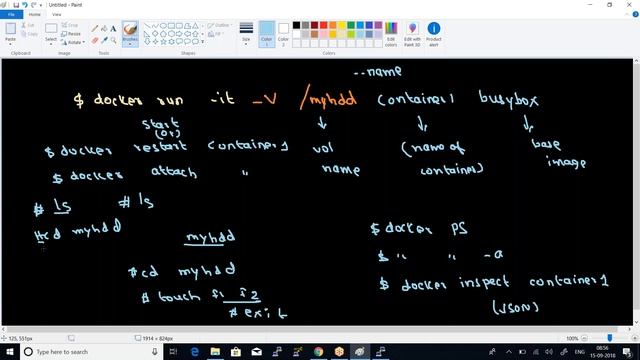 Untitled - Paint
File Home View
Paste
Clipboard
Select
Crop
Resize
Rotate
Image
Tools
Brushes
Shapes
Outline
Fill
Size
Color 1
Color 2
Colors
Edit colors
Edit with Paint 3D
Product alert
--name
$ docker run -it -V /myhdd container1 busybox
start
(or)
$ docker restart container1 vol (name of base
$ docker attach " name container) image
# ls # ls
#cd myhdd
myhdd
#cd myhdd
# touch f1 f2
# exit
$ docker PS
$ " " -a
$ docker inspect container1
(JSON)
125, 551px
1914 × 824px
100%
Type here to search
ENG
08:56
15-09-2018